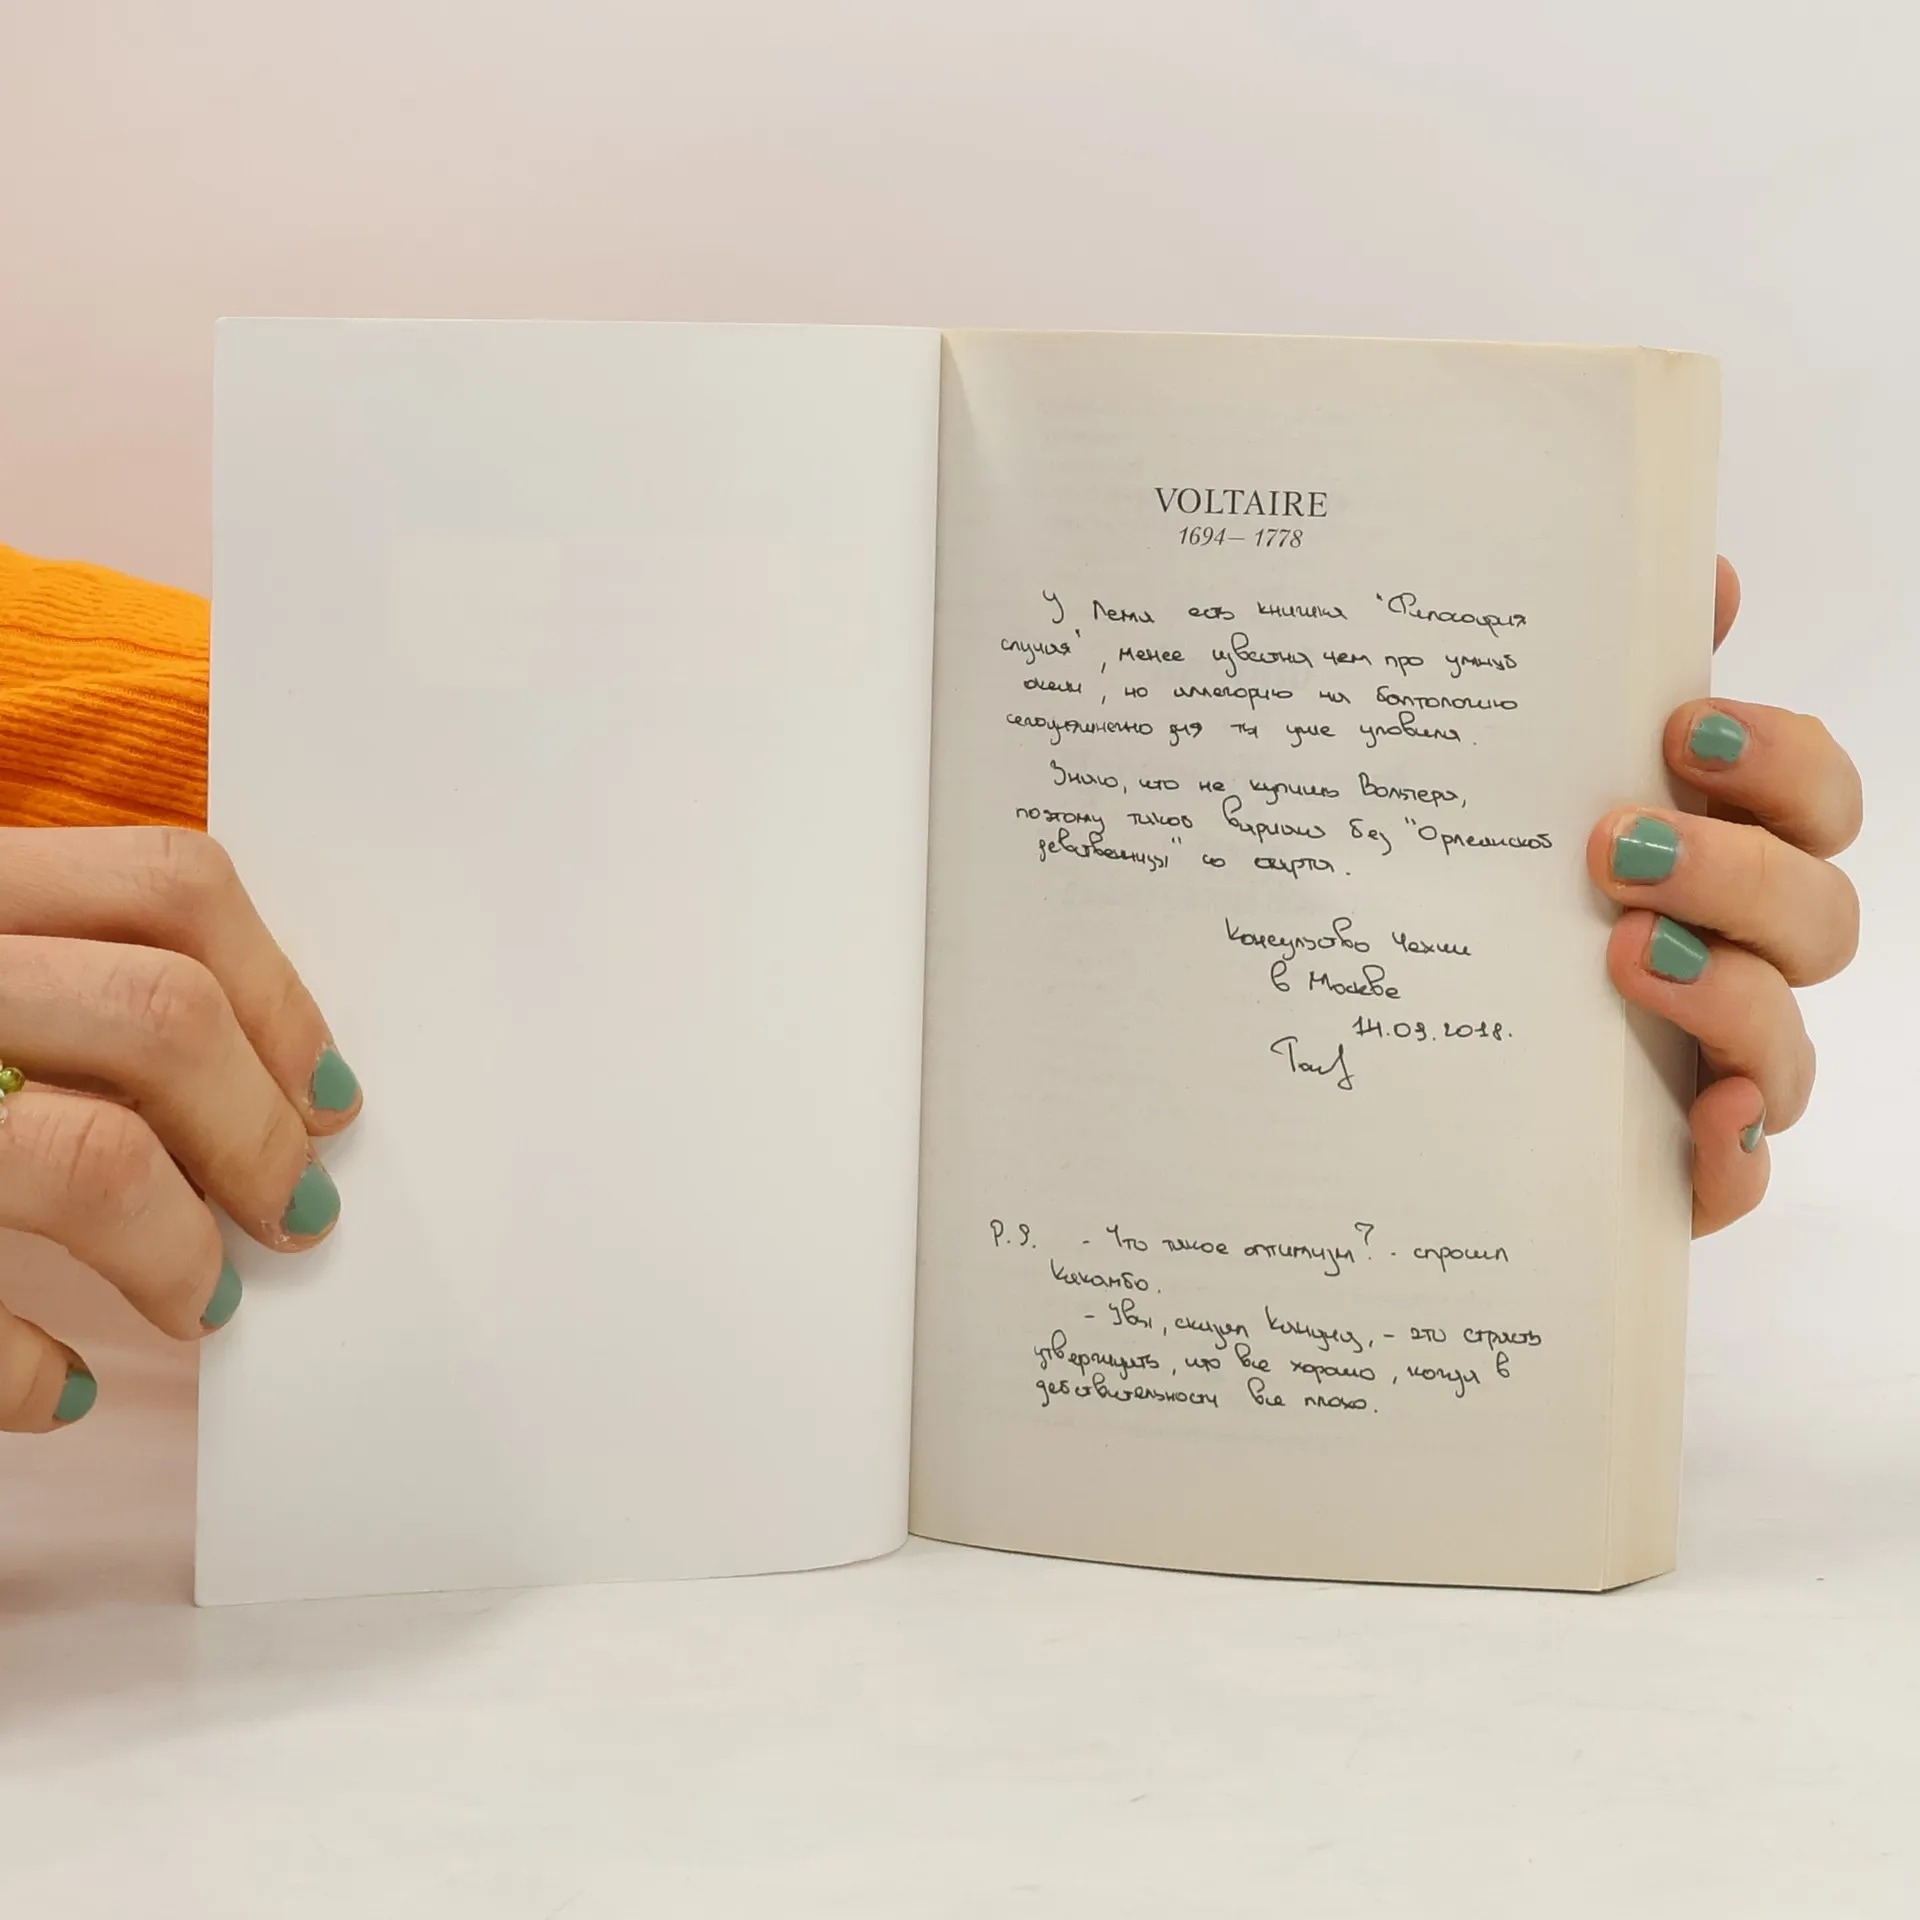 VOLTAIRE
1694— 1778
У Лема есть книжка "Философия
случая", менее известна чем про умный
океан, но аллегорию на болтологию
сегодняшнего дня ты уже уловила.
Знаю, что не купишь Вольтера,
поэтому такой вариант без "Орлеанской
девственницы" со старта.
Консульство Чехии
в Москве
14.09.2018.
P.S. - Что такое оптимизм? - спросил
Какамбо.
- Увы, сказал Кандид, - это страсть
утверждать, что все хорошо, когда в
действительности все плохо.